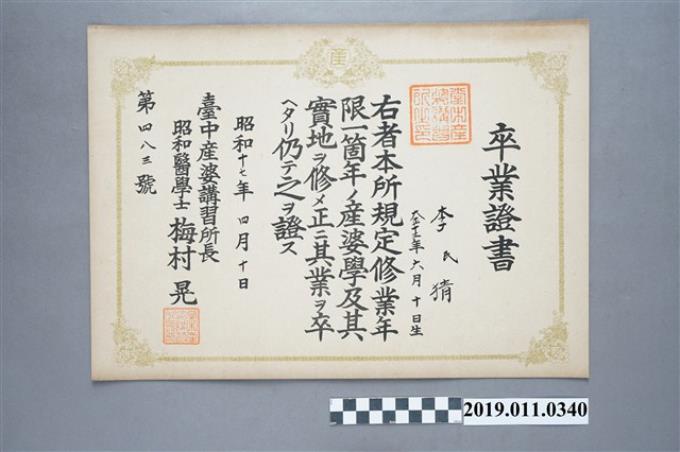 卒業證書
李氏猜
大正十三年六月十日生
右者本所規定修業年
限一箇年ノ産婆學及其
實地ヲ修メ正ニ其業ヲ卒
ヘタリ仍テ之ヲ證ス
昭和十七年四月十日
臺中産婆講習所長
昭和醫學士 梅村晃
第四八三號
産
2019.011.0340